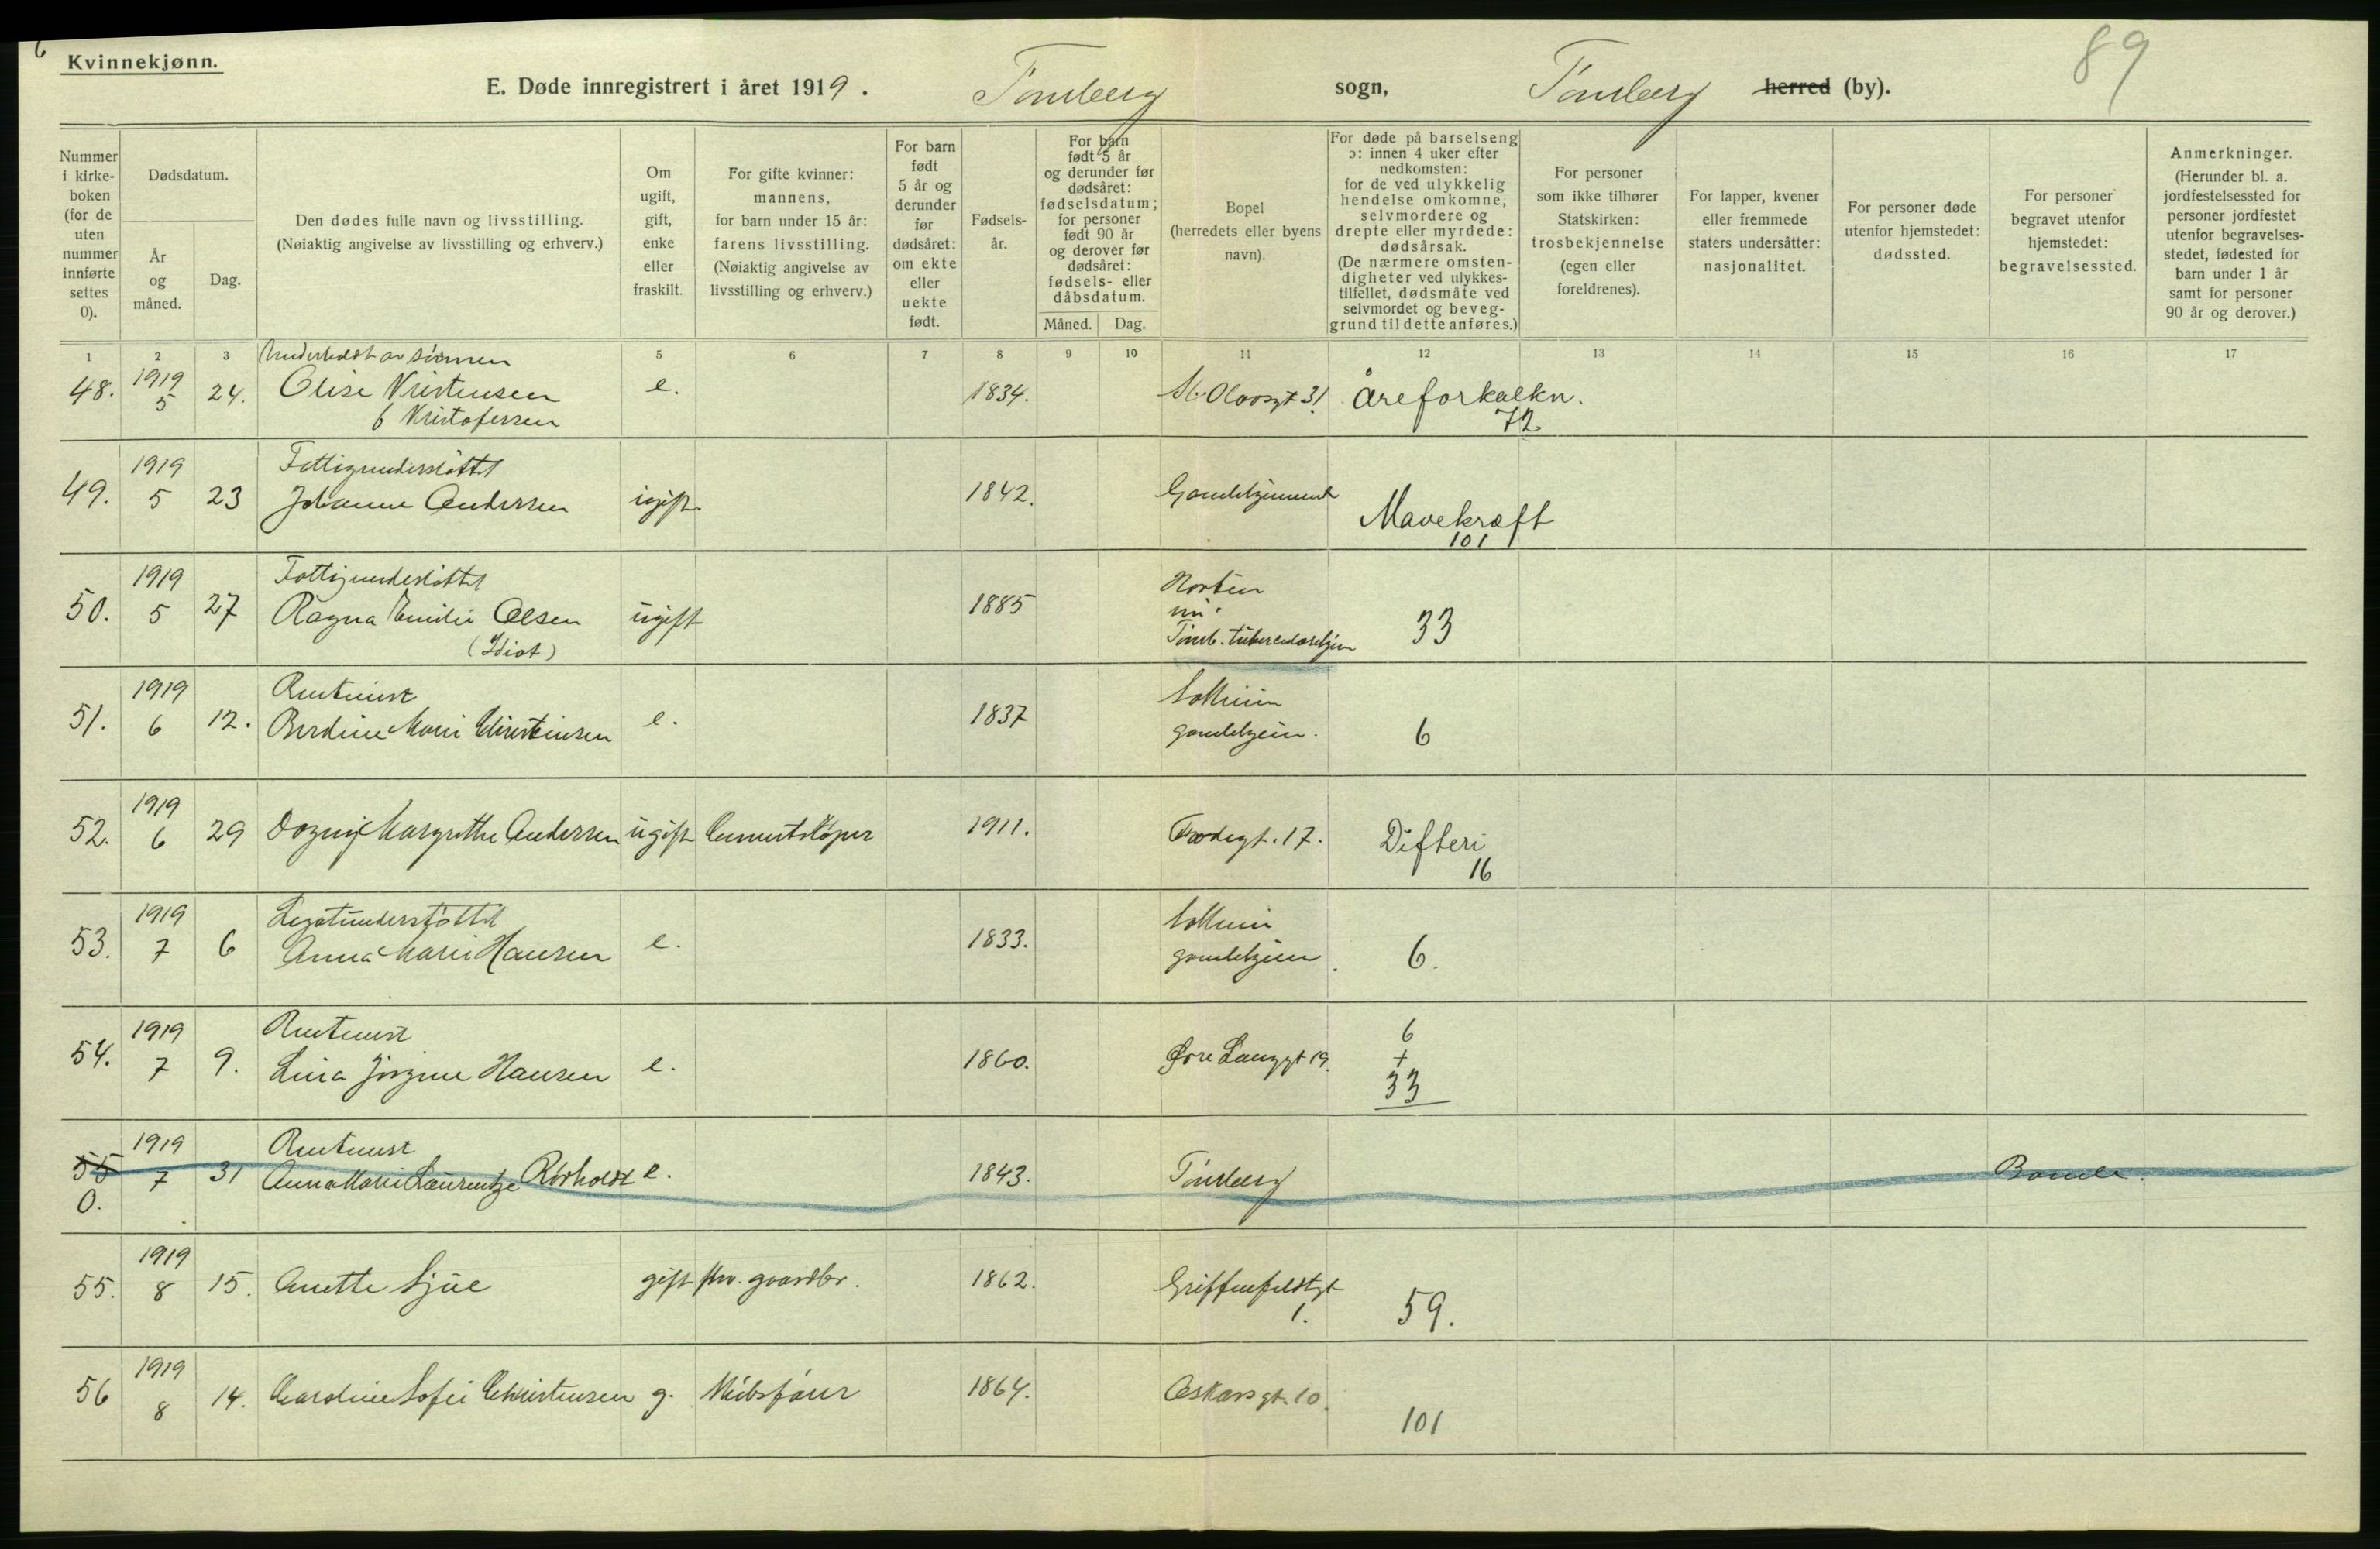 Kvinnekjønn.
89
E. Døde innregistrert i året 1919. Tønsberg sogn, Tønsberg herred (by).
Nummer i kirke-boken (for de uten nummer innførte settes 0).
Dødsdatum.
År og måned.
Dag.
Den dødes fulle navn og livsstilling.
(Nøiaktig angivelse av livsstilling og erhverv.)
Om ugift, gift, enke eller fraskilt.
For gifte kvinner: mannens, for barn under 15 år: farens livsstilling. (Nøiaktig angivelse av livsstilling og erhverv.)
For barn født 5 år og derunder før dødsåret: om ekte eller uekte født.
Fødsels-år.
For barn født 5 år og derunder før dødsåret: fødselsdatum; for personer født 90 år og derover før dødsåret: fødsels- eller dåbsdatum.
Måned. Dag.
Bopel (herredets eller byens navn).
For døde på barselseng ɔ: innen 4 uker efter nedkomsten: for de ved ulykkelig hendelse omkomne, selvmordere og drepte eller myrdede: dødsårsak. (De nærmere omsten-digheter ved ulykkes-tilfellet, dødsmåte ved selvmordet og beveg-grund til dette anføres.)
For personer som ikke tilhører Statskirken: trosbekjennelse (egen eller foreldrenes).
For lapper, kvener eller fremmede staters undersåtter: nasjonalitet.
For personer døde utenfor hjemstedet: dødssted.
For personer begravet utenfor hjemstedet: begravelsessted.
Anmerkninger. (Herunder bl. a. jordfestelsessted for personer jordfestet utenfor begravelses-stedet, fødested for barn under 1 år samt for personer 90 år og derover.)
1 2 3 5 6 7 8 9 10 11 12 13 14 15 16 17
Underholdt av sønnen
48. 1919 5 24. Olise Kristensen e. 1834. St. Olavsgt 31. Åreforkalkn.
f Kristofersen 72
Fattigunderstøttet
49. 1919 5 23 Johanne Andersen ugift. 1842. Gamlehjemmet Mavekræft
101
Fattigunderstøttet
50. 1919 5 27 Ragna Emilie Olsen ugift 1885 Horten nu: Tønsb. tuberculosehjem 33
(Idiot)
Rentenist
51. 1919 6 12. Berdine Marie Christensen e. 1837 Solheim gamlehjem. 6
52. 1919 6 29 Dagny Margrethe Andersen ugift Cementstøper 1911. Frodegt. 17. Difteri
16
Legatunderstøttet
53. 1919 7 6 Anna Marie Hansen e. 1833. Solheim gamlehjem. 6.
Rentenist
54. 1919 7 9. Lina Jørgine Hansen e. 1860. Øvre Langgt 19. 6 + 33
Rentenist
55 0. 1919 7 31 Anna Marie Laurentze Rörholdt e. 1843. Tønsberg Bamle.
55. 1919 8 15. Anette Sjue gift fhv. gaardbr. 1862. Griffenfeldtgt 1. 59.
56 1919 8 14. Caroline Sofie Christensen g. Skibsfører 1864. Oskarsgt. 10. 101